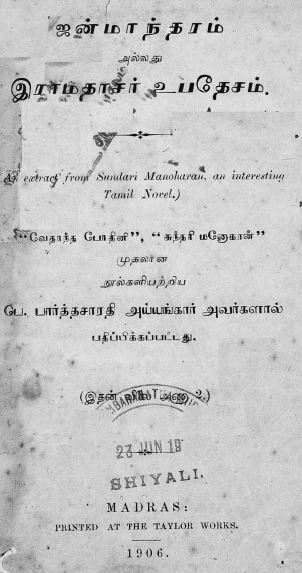 ஜன்மாந்தரம்
அல்லது
இராமதாசர் உபதேசம்.
An extract from Sundari Manoharan, an interesting
Tamil Novel.)
"வேதாந்த போதினி", "சுந்தரி மனோகரன்"
முதலான
நூல்களியற்றிய
பே. பார்த்தசாரதி அய்யங்கார் அவர்களால்
பதிப்பிக்கப்பட்டது.
(இதன் விலை அணா உ.)
23 JUN 19
SHIYALI.
MADRAS:
PRINTED AT THE TAYLOR WORKS.
1906.